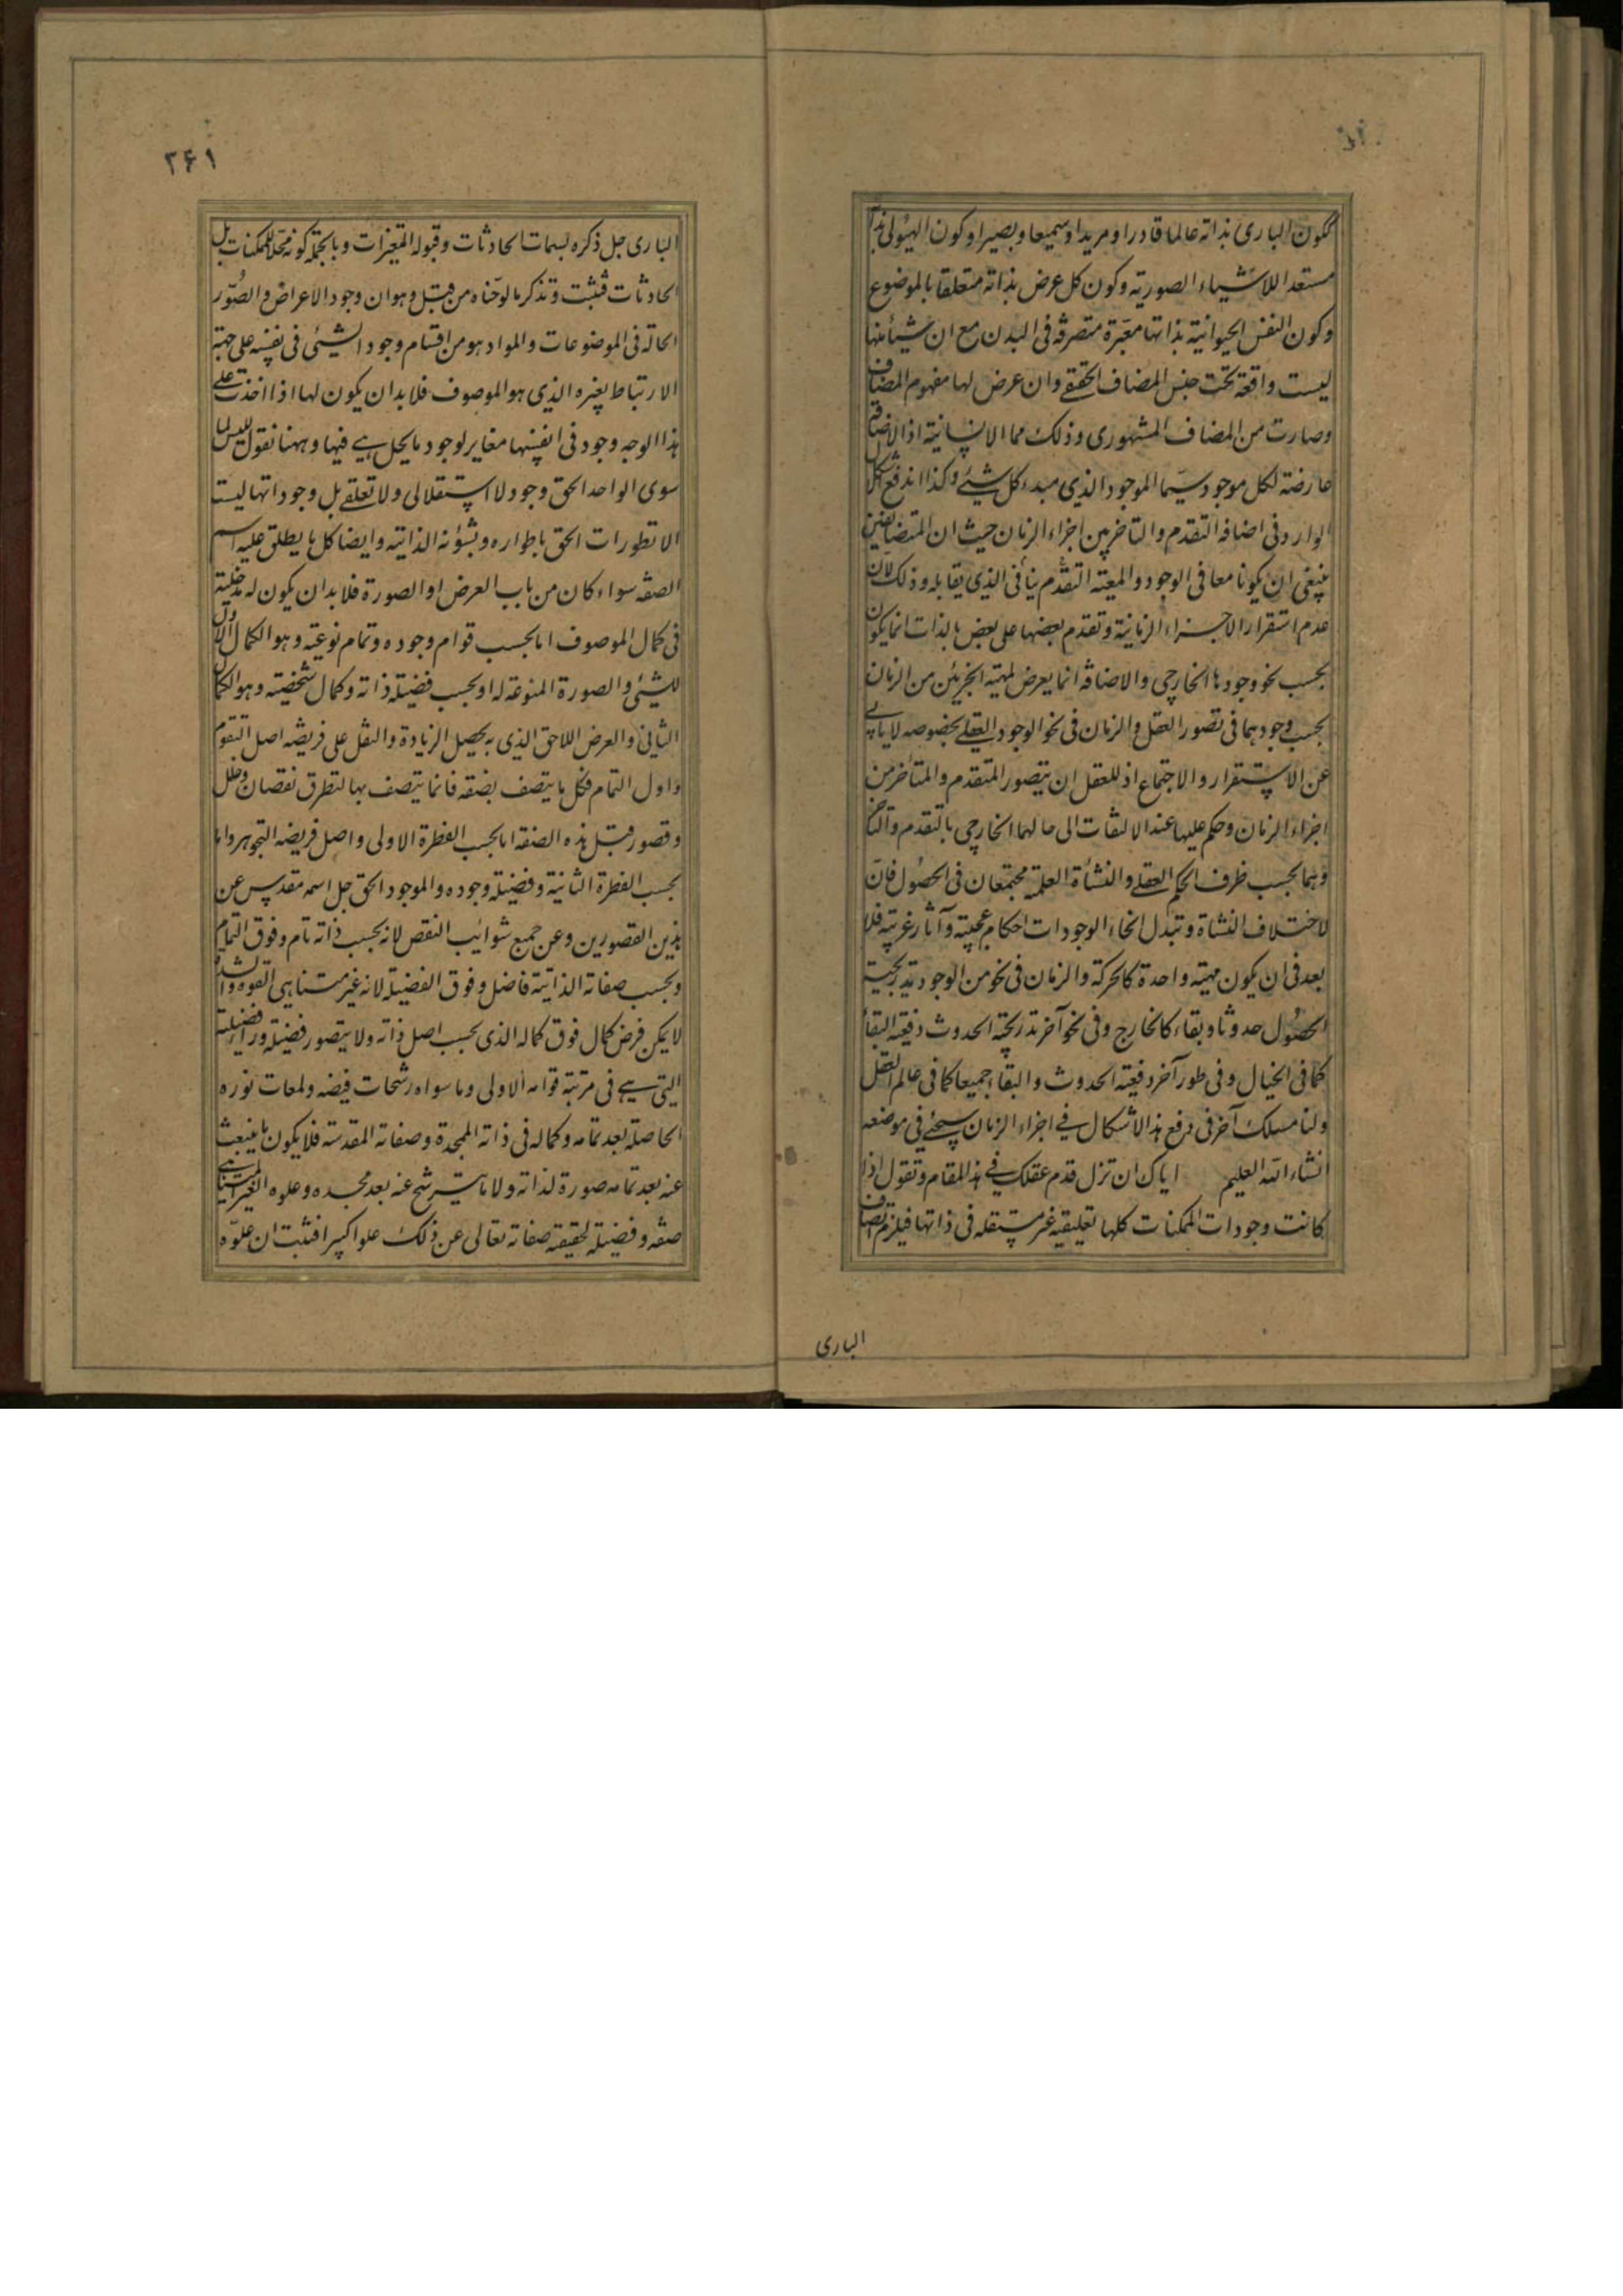 ككون الباری بذاته عالما قادرا و مریدا و سمیعا و بصیرا و كون الهیولی بذاتها
مستعدا للاشیاء الصوریة و كون كل عرض بذاته متعلقا بالموضوع
و كون النفس الحیوانیة بذاتها مدبرة متصرفة فی البدن مع ان شیئا منها
لیست واقعة تحت جنس المضاف الحقیقی و ان عرض لها مفهوم المضاف
و صارت من المضاف المشهوری و ذلك مما لا اذ الاضافة
عارضة لكل موجود سیما الموجود الذی مبدء كل شیئ و كذا اندفع الاشكال
الوارد فی اضافة التقدم و التاخر بین اجزاء الزمان حیث ان المتضایفین
ینبغی ان یكونا معا فی الوجود و المعیة ینافی التقدم الذی یقابله و ذلك لان
عدم استقرار الاجزاء الزمانیة و تقدم بعضها علی بعض بالذات انما یكون
بحسب نحو وجودها الخارجی و الاضافة انما یعرض لمهیة الجزئین من الزمان
بحسب وجودهما فی تصور العقل و الزمان فی نحو الوجود العقلی بخصوصه لا یابی
عن الاستقرار و الاجتماع اذ للعقل ان یتصور المتقدم و المتاخر من
اجزاء الزمان و حكم علیها عند الالتفات الی حالهما الخارجی بالتقدم و التاخر
و هما بحسب ظرف الحكم العقلی و النشأة العلمیة مجتمعان فی الحصول فان
لاختلاف النشاة و تبدل انحاء الوجودات احكام عجیبة و آثار غریبة فلا
بعد فی ان یكون مهیة واحدة كالحركة و الزمان فی نحو من الوجود تدریجیة
الحصول حدوثا و بقاء كالخارج و فی نحو آخر تدریجیة الحدوث دفعیة البقاء
كما فی الخیال و فی طور آخر دفعیة الحدوث و البقاء جمیعا كما فی عالم العقل
و لنا مسلك آخر فی دفع هذا الاشكال فی اجزاء الزمان سیجئ فی موضعه
انشاء الله العلیم ایاك ان تزل قدم عقلك فی هذا المقام و تقول اذا
كانت وجودات الممكنات كلها تعلیقیة غیر مستقلة فی ذاتها فیلزم اتصاف
الباری
۲۶۱
الباری جل ذكره بسمات الحادثات و قبوله المتغیرات و بالجملة كونه محلا للممكنات بل
الحادثات فثبت و تذكر ما لوحناه من قبل و هو ان وجود الاعراض و الصور
الحالة فی الموضوعات و المواد هو من اقسام وجود الشیئ فی نفسه علی جهة
الارتباط بغیره الذی هو الموصوف فلا بد ان یكون لها اذا اخذت علی
هذا الوجه وجود فی انفسها مغایر لوجود ما یحل هی فیها و ههنا نقول لیس لما
سوی الواحد الحق وجود لا استقلالی و لا تعلقی بل وجوداتها لیست
الا تطورات الحق باطواره و بشؤنه الذاتیة و ایضا كل ما یطلق علیه اسم
الصفة سواء كان من باب العرض او الصورة فلا بد ان یكون له مدخلیة
فی كمال الموصوف اما بحسب قوام وجوده و تمام نوعیته و هو الكمال الاول
للشیئ و الصورة المنوعة له او بحسب فضیلة ذاته و كمال شخصیته و هو الكمال
الثانی و العرض اللاحق الذی به یحصل الزیادة و النفل علی فریضة اصل التقوم
و اول التمام فكل ما یتصف بصفة فانما یتصف بها لتطرق نقصان و خلل
و قصور قبل هذه الصفة اما بحسب الفطرة الاولی و اصل فریضة التجوهر و اما
بحسب الفطرة الثانیة و فضیلة وجوده و الموجود الحق جل اسمه مقدس عن
هذین القصورین و عن جمیع شوائب النقص لانه بحسب ذاته تام و فوق التمام
و بحسب صفاته الذاتیة فاضل و فوق الفضیلة لانه غیر متناهی القوة و الشدة
لا یمكن فرض كمال فوق كماله الذی بحسب اصل ذاته و لا یتصور فضیلة وراء فضیلته
التی هی فی مرتبة قوامه الاولی و ما سواه رشحات فیضه و لمعات نوره
الحاصلة بعد تمامه و كماله فی ذاته الممجدة و صفاته المقدسة فلا یكون ما ینبعث
عنه بعد تمامه صورة لذاته و لا ما یترشح عنه بعد مجده و علوه الغیر المتناهی
صفة و فضیلة لحقیقة صفاته تعالی عن ذلك علوا كبیرا فثبت ان علوه